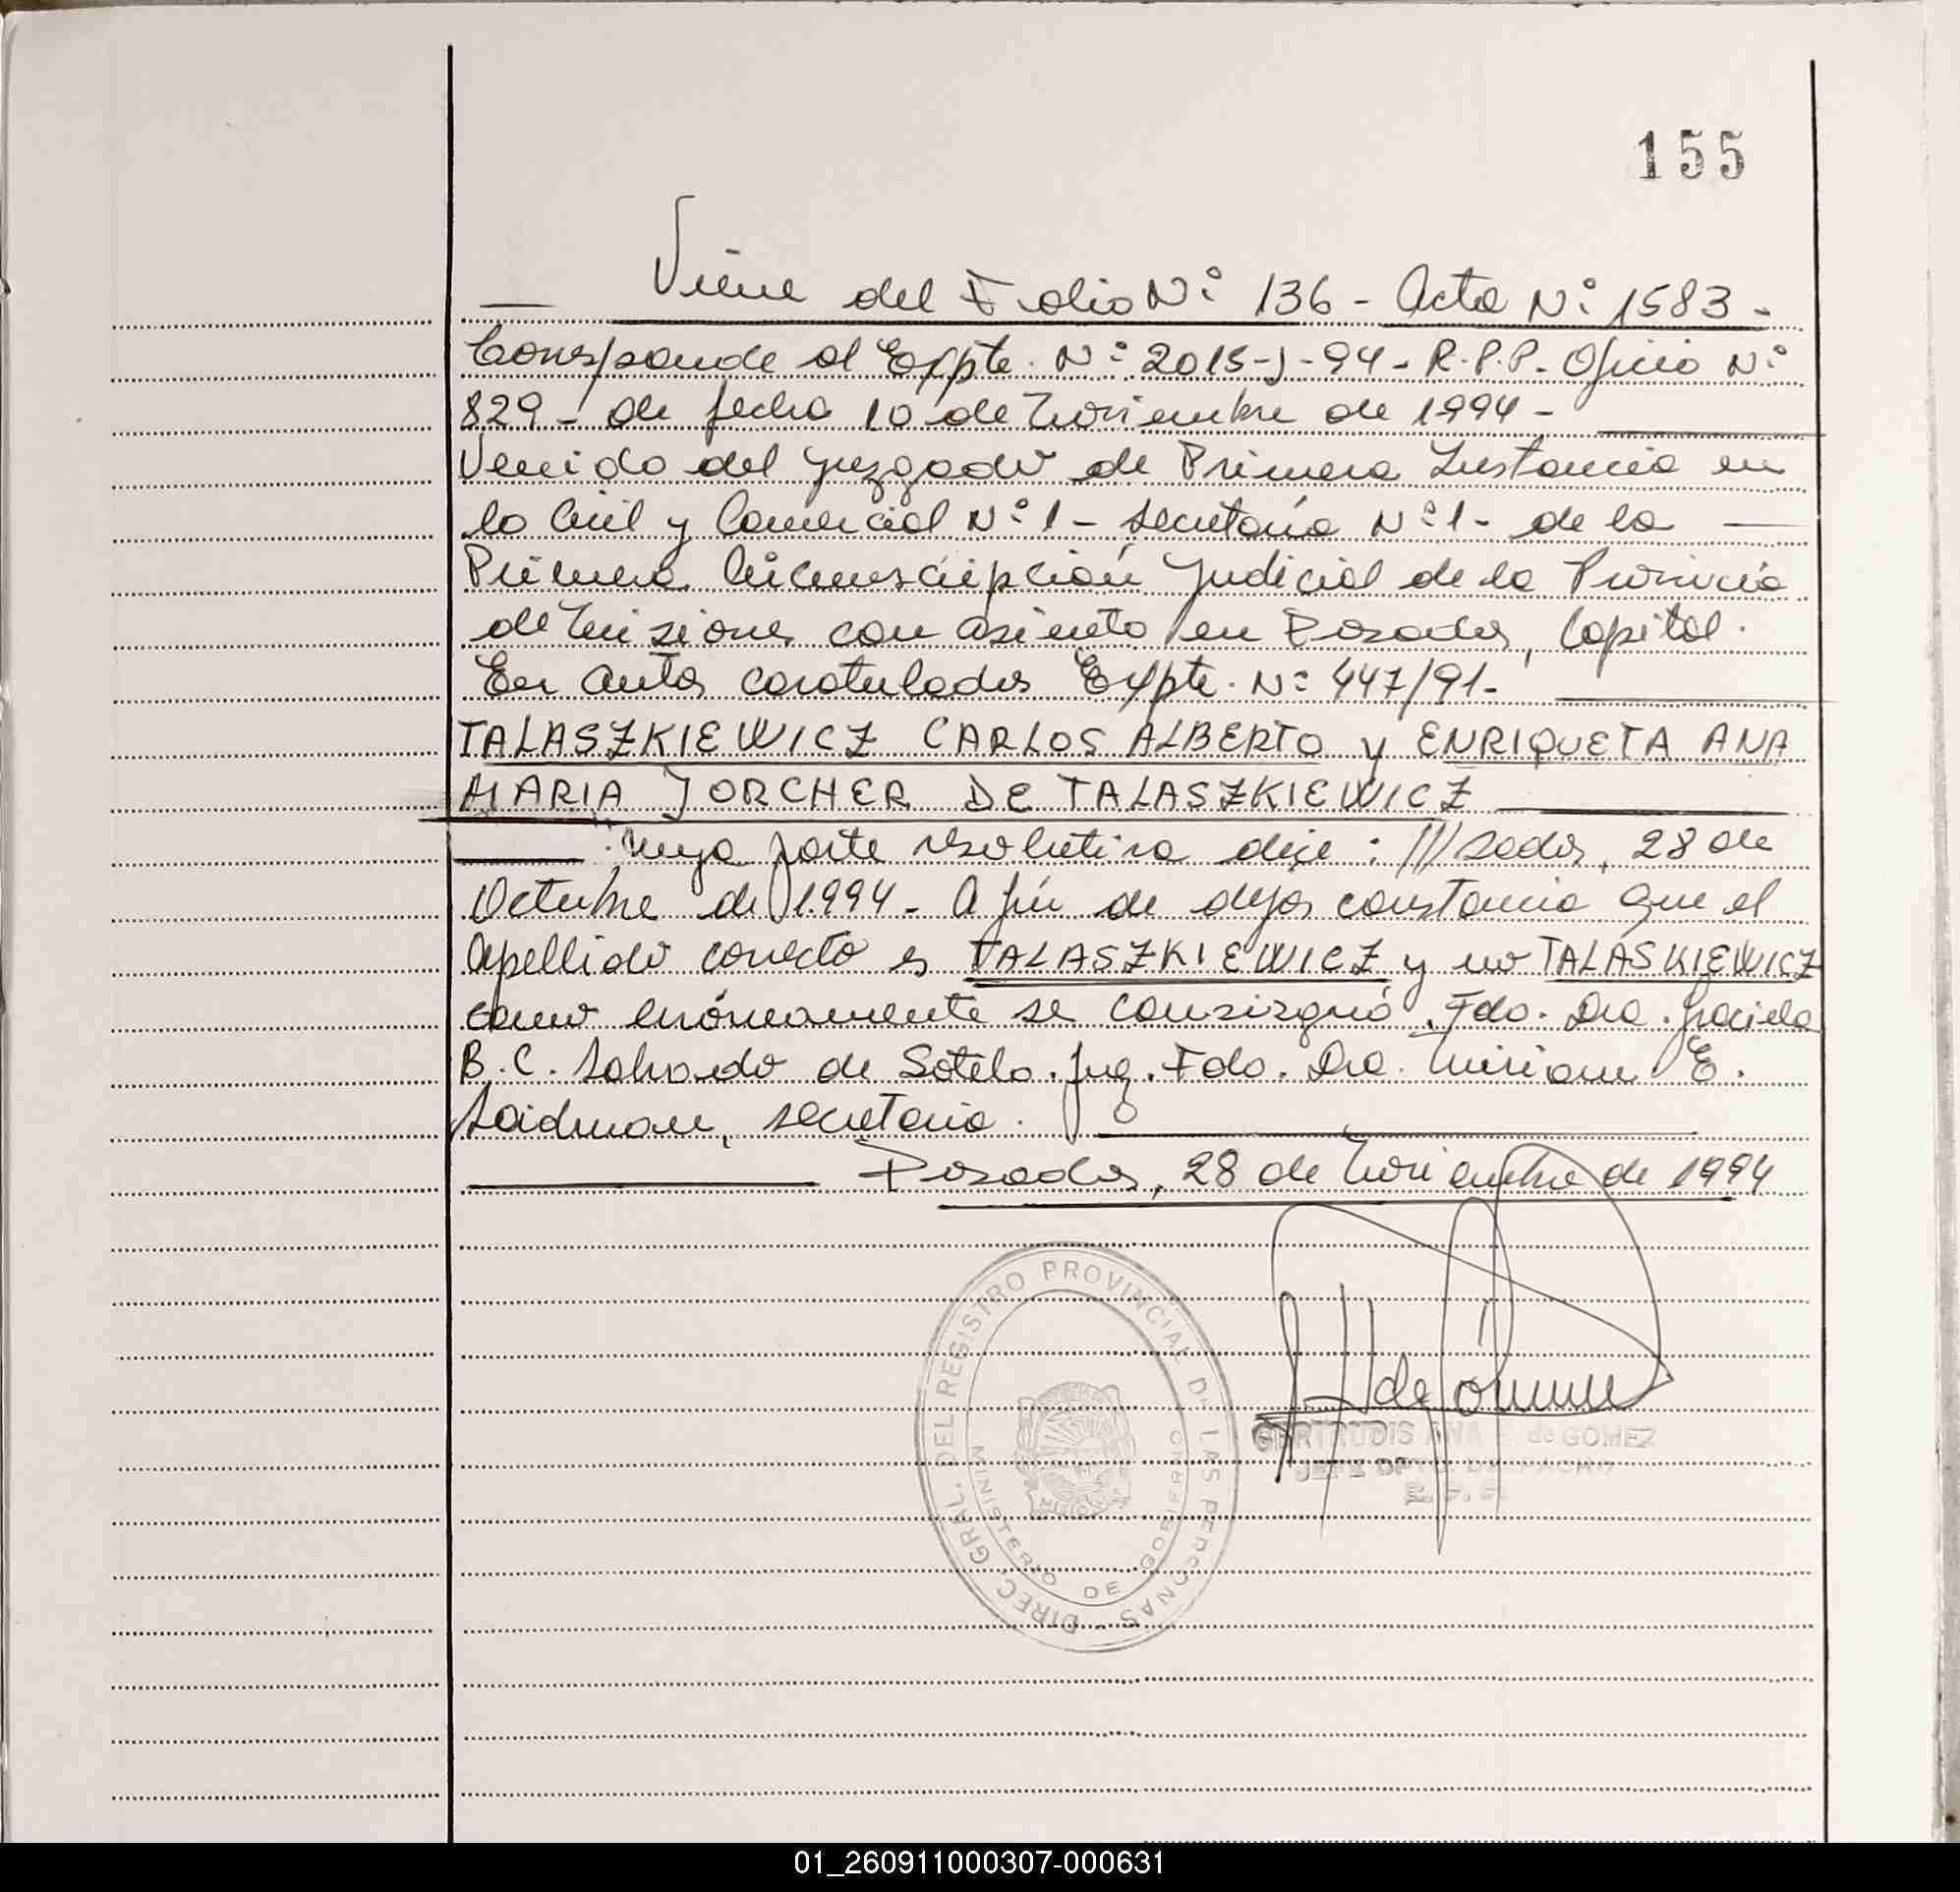 155
— Viene del Folio Nº 136 - Acta Nº 1583 -
Corresponde al Expte. Nº 2015-J-94- R.P.P. Oficio Nº
829 - de fecha 10 de Noviembre de 1994 -
Venido del Juzgado de Primera Instancia en
lo Civil y Comercial Nº 1 - Secretaría Nº 1 - de la —
Primera Circunscripción Judicial de la Provincia
de Misiones con asiento en Posadas, Capital.
En autos caratulados Expte. Nº 447/91-
TALASZKIEWICZ CARLOS ALBERTO y ENRIQUETA ANA
MARIA JORCHER DE TALASZKIEWICZ
cuya parte resolutiva dice: ///sadas, 28 de
Octubre de 1994 - A fin de dejar constancia que el
apellido correcto es TALASZKIEWICZ y no TALASKIEWICZ
como erróneamente se consignó. Fdo. Dra. Graciela
B. C. Salvado de Sotelo. Juez. Fdo. Dra. Miriam E.
Saidman, secretaria.
Posadas, 28 de Noviembre de 1994
DIREC. GRAL. DEL REGISTRO PROVINCIAL DE LAS PERSONAS -
MINISTERIO DE GOBIERNO
GERTRUDIS ANA de GOMEZ
JEFE DPTO. DESPACHO
R.P.P.
01_260911000307-000631